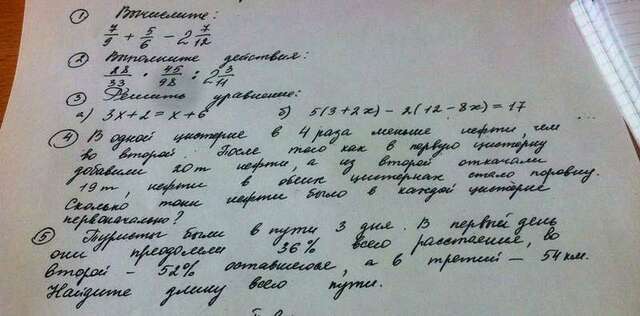 ① Вычислите:
7/9 + 5/6 − 2 7/12
② Выполните действия:
28/33 · 45/98 : 2 3/11
③ Решить уравнение:
а) 3х+2=х+6 б) 5(3+2х)−2(12−8х)=17
④ В одной цистерне в 4 раза меньше нефти, чем
во второй. После того как в первую цистерну
добавили 20т нефти, а из второй откачали
19т, нефти в обеих цистернах стало поровну.
Сколько тонн нефти было в каждой цистерне
первоначально?
⑤ Туристы были в пути 3 дня. В первый день
они преодолели 36% всего расстояние, во
второй – 52% оставшегося, а в третий – 54 км.
Найдите длину всего пути.